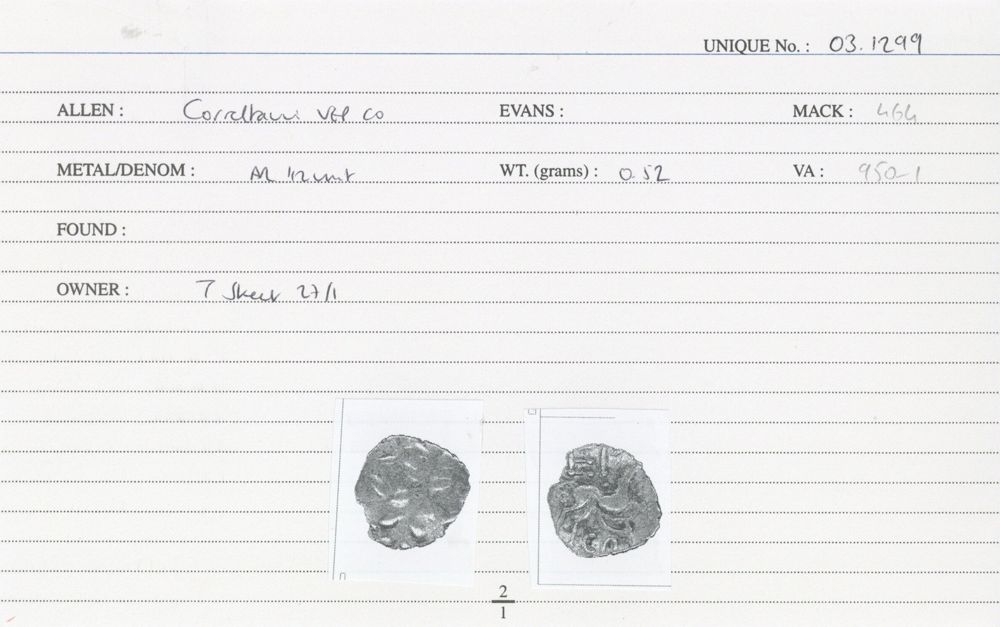 UNIQUE No. : 03.1299
ALLEN : Correltauvi VEP CO EVANS : MACK : 464
METAL/DENOM : AR 1/2 unit WT. (grams) : 0.52 VA : 950-1
FOUND :
OWNER : T Skeet 27/1
2
1